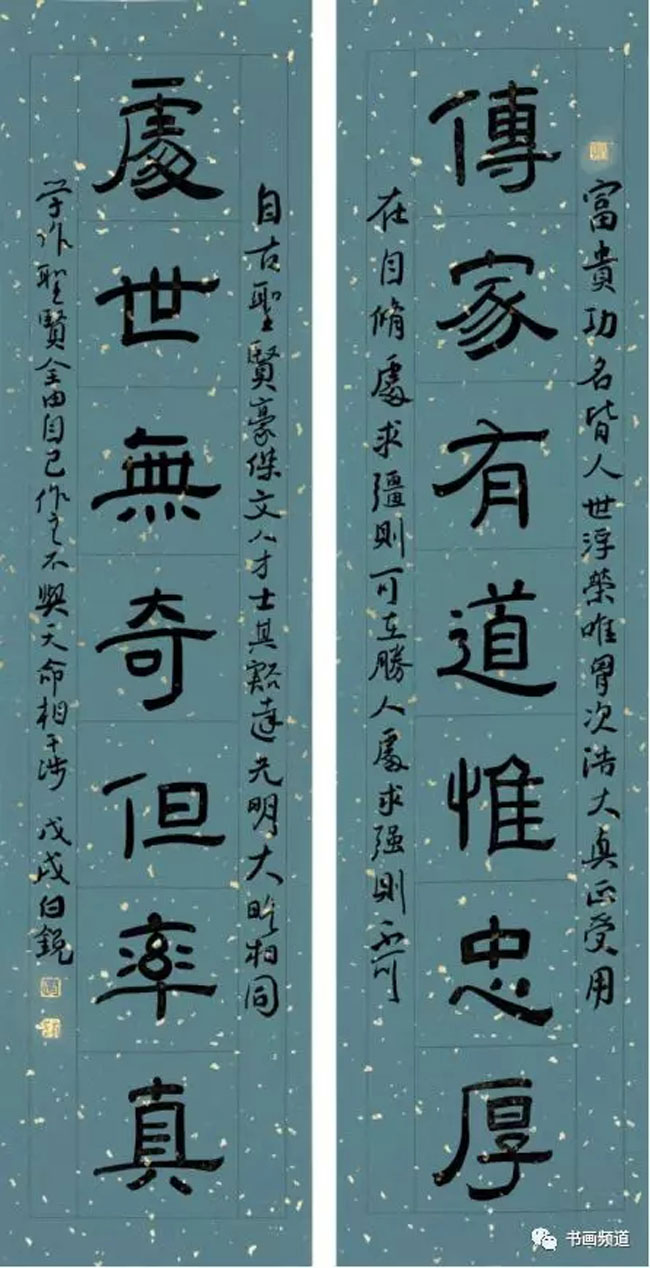 富貴功名皆人世浮榮唯胷次浩大真正受用
傳家有道惟忠厚
在自脩處求彊則可在勝人處求强則不可
自古聖賢豪傑文人才士其豁達光明大略相同
處世無奇但率真
学作聖賢全由自己作主不與天命相干涉 戊戌白銳
书画频道